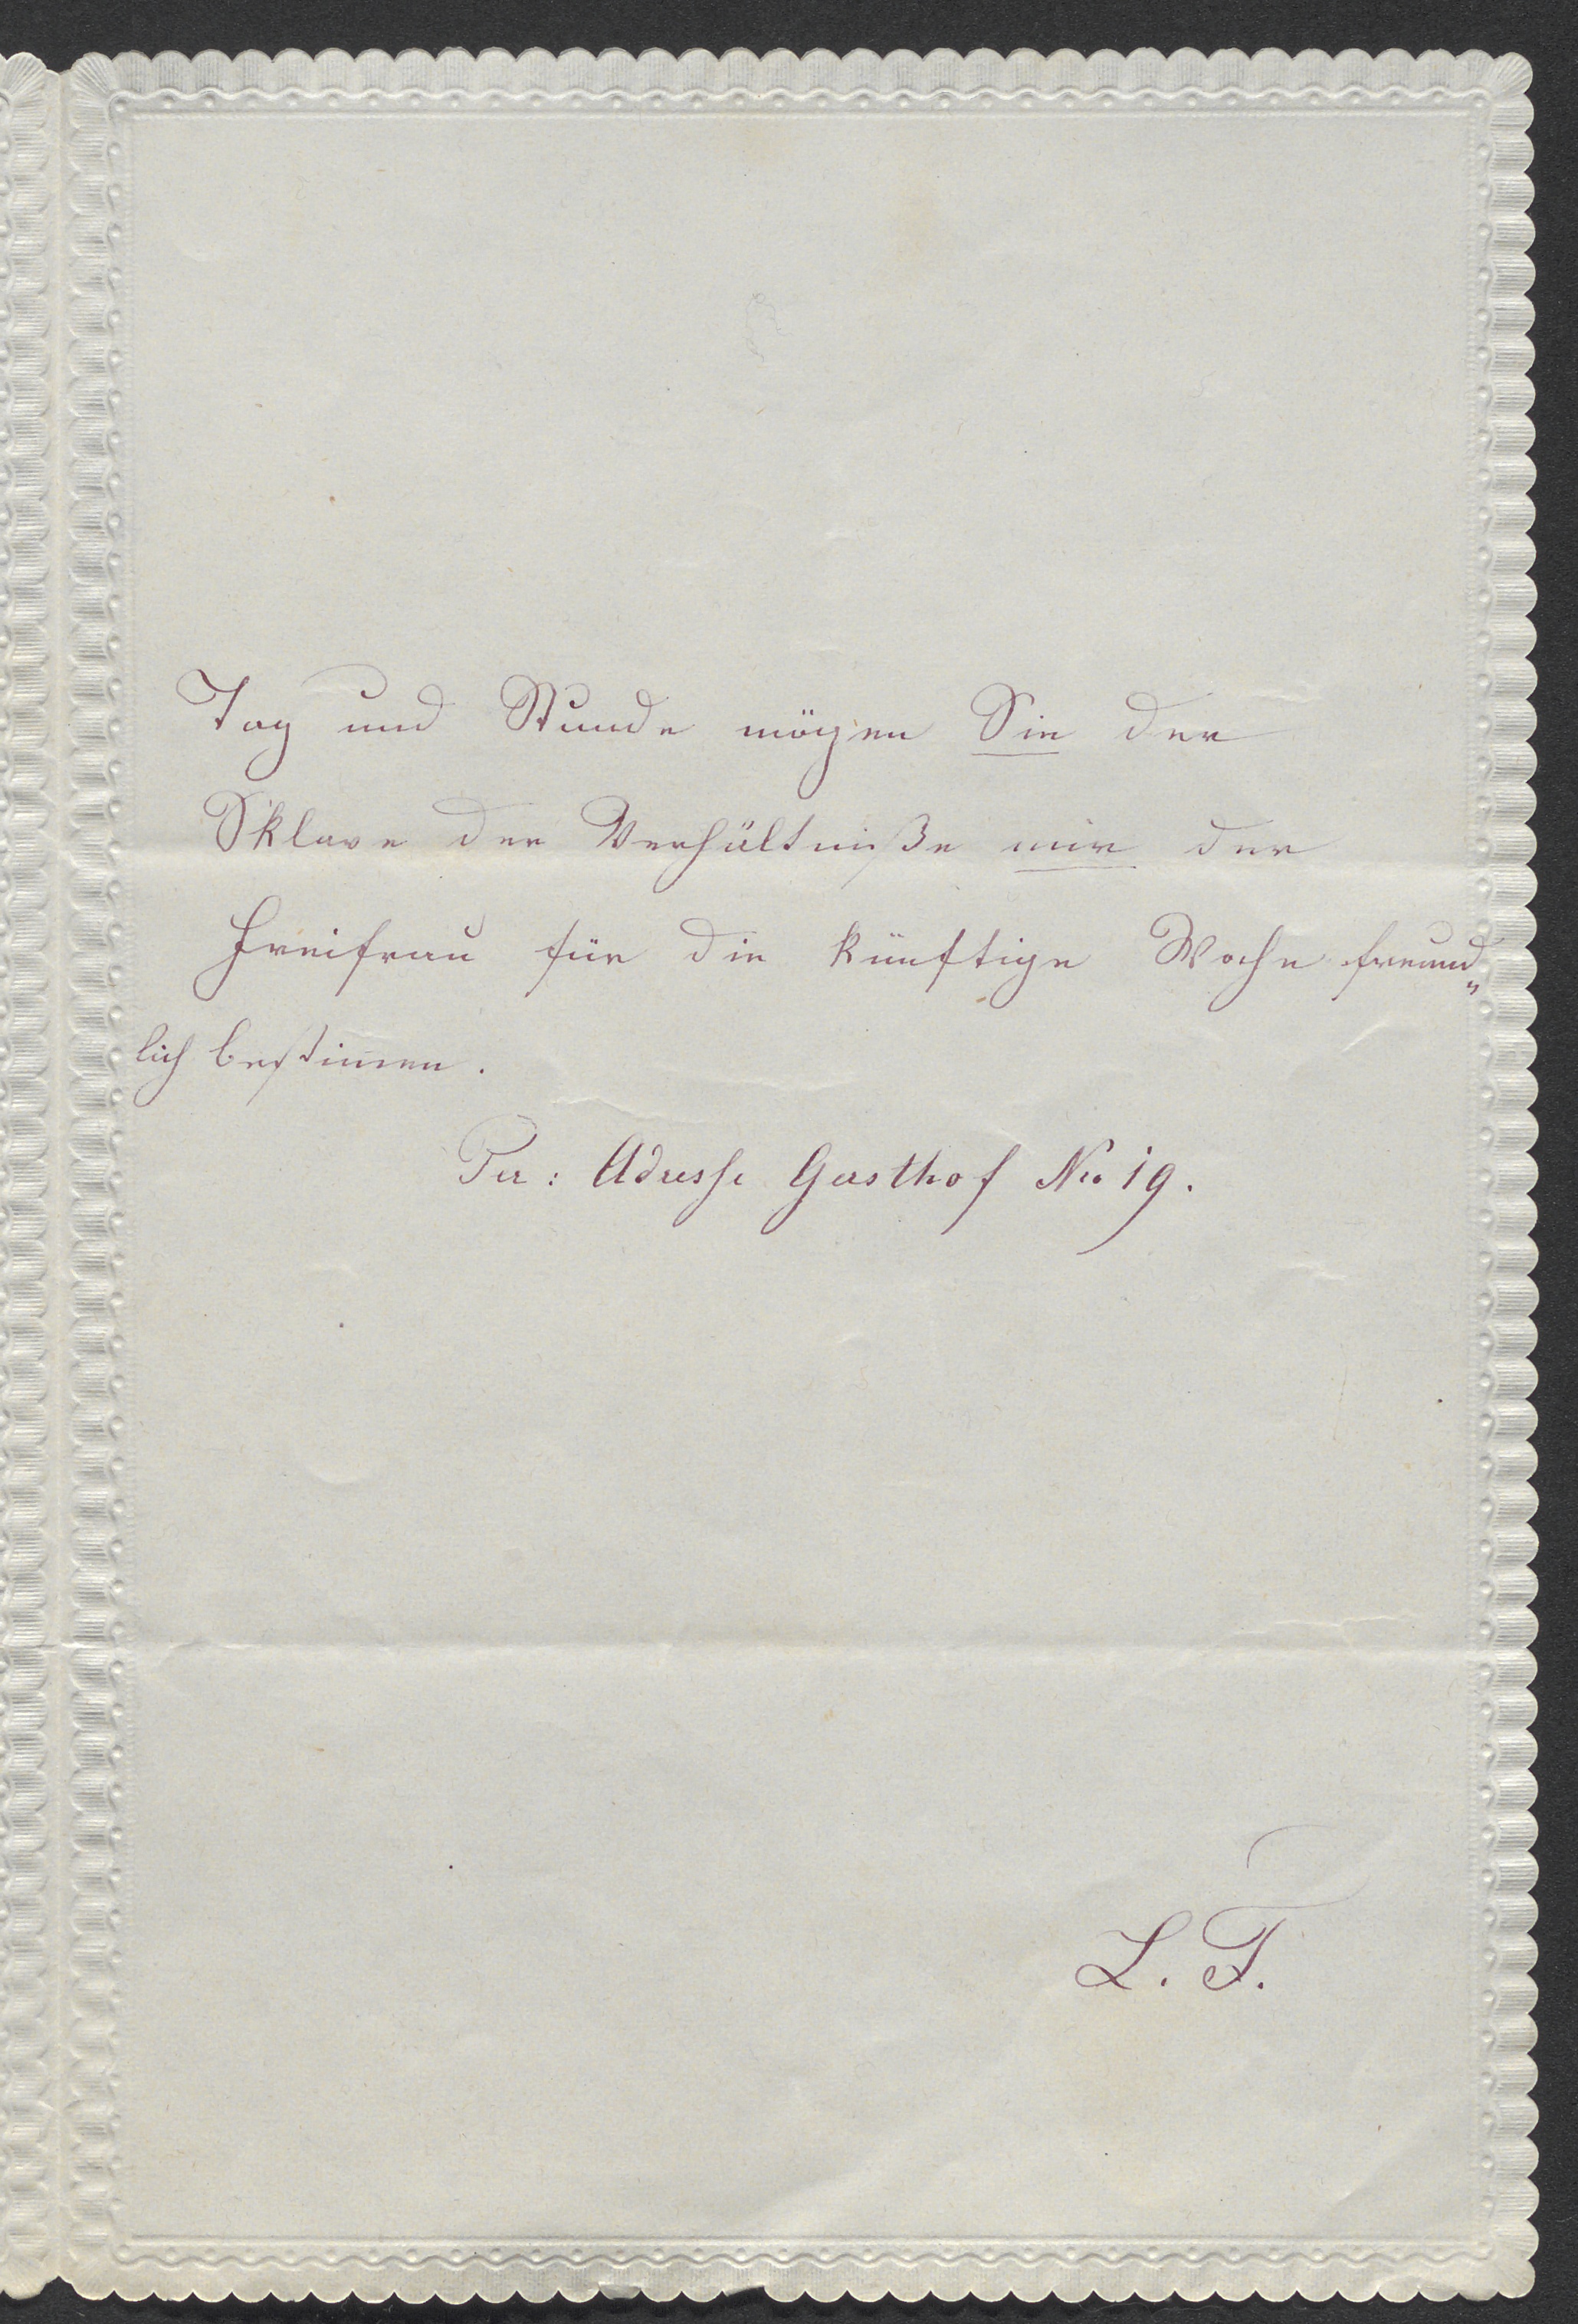 Tag und Stunde mögen Sie der
Sklave der Verhältniße mir der
Freifrau für die künftige Woche freund„
lich bestim̄en.
Per: Adresse Gasthof No 19.
L. F.